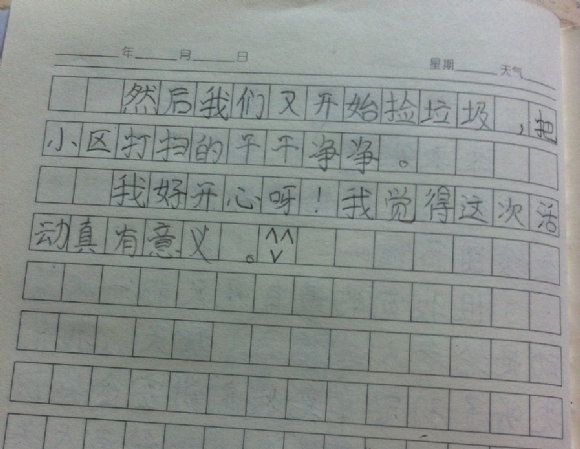 年 月 日 星期 天气
然后我们又开始捡垃圾，把
小区打扫的干干净净。
我好开心呀！我觉得这次活
动真有意义。^^
v